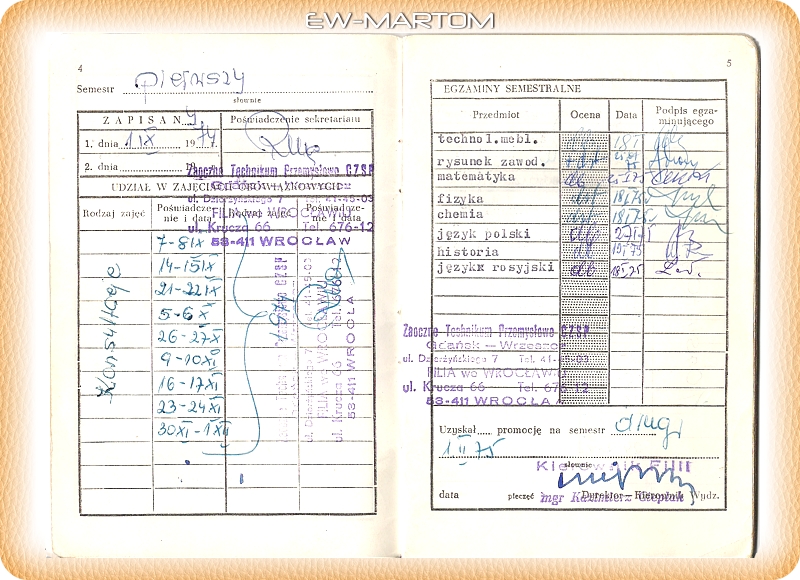 EW-MARTOM
4
Semestr pierwszy
słownie
ZAPISANY
Poświadczenie sekretariatu
1. dnia 1 IX 1974
2. dnia 19
Zaoczne Technikum Przemysłowe CZSP
UDZIAŁ W ZAJĘCIACH OBOWIĄZKOWYCH
ul. Dzierżyńskiego 7 Tel. 41-45-03
FILIA we WROCŁAWIU
ul. Krucza 66 Tel. 676-12
53-411 WROCŁAW
Rodzaj zajęć
Poświadczenie i data
Rodzaj zajęć
Poświadczenie i data
Konsultacje
7-8 IX
14-15 IX
21-22 IX
5-6 X
26-27 X
9-10 XI
16-17 XI
23-24 XI
30 XI-1 XII
5
EGZAMINY SEMESTRALNE
Przedmiot Ocena Data Podpis egzaminującego
technol.mebl.
rysunek zawod.
matematyka db
fizyka 18 I 75
chemia 18 I 75
język polski
historia
język rosyjski db 18 I 75
Zaoczne Technikum Przemysłowe CZSP
Gdańsk — Wrzeszcz
ul. Dzierżyńskiego 7 Tel. 41-45-03
FILIA we WROCŁAWIU
ul. Krucza 66 Tel. 676-12
53-411 WROCŁAW
Uzyskał..... promocję na semestr drugi
1 II 75
słownie
Kierownik Filii
data pieczęć Dyrektor — Kierownik Wydz.
mgr Kazimierz